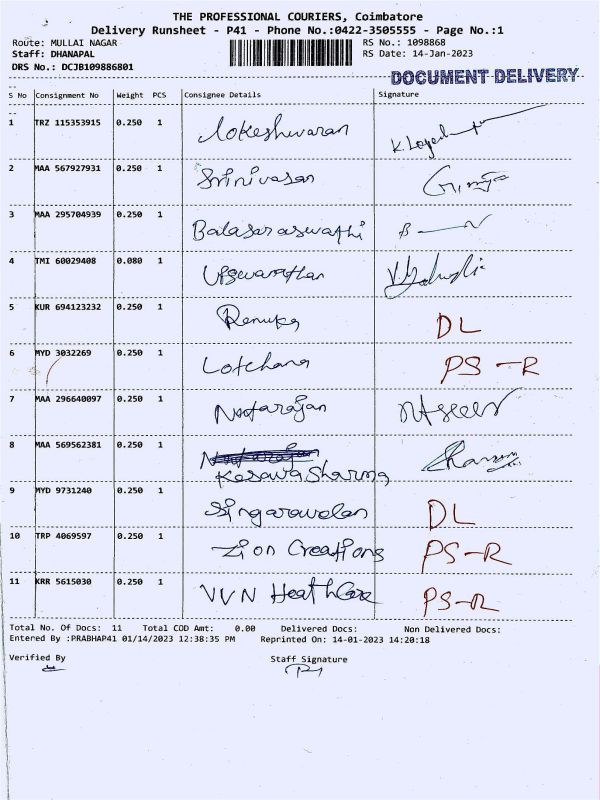 THE PROFESSIONAL COURIERS, Coimbatore
Delivery Runsheet - P41 - Phone No.:0422-3505555 - Page No.:1
Route: MULLAI NAGAR RS No.: 1098868
Staff: DHANAPAL RS Date: 14-Jan-2023
DRS No.: DCJB109886801
DOCUMENT DELIVERY
S No Consignment No Weight PCS Consignee Details Signature
1 TRZ 115353915 0.250 1 Lokeshwaran
2 MAA 567927931 0.250 1 Srinivasan
3 MAA 295704939 0.250 1 Balasaraswathi
4 TMI 60029408 0.080 1
5 KUR 694123232 0.250 1 Renuka DL
6 MYD 3032269 0.250 1 PS-R
7 MAA 296640097 0.250 1 Natarajan
8 MAA 569562381 0.250 1
Kesava Sharma
9 MYD 9731240 0.250 1 Singaravelan DL
10 TRP 4069597 0.250 1 Zion Creations PS-R
11 KRR 5615030 0.250 1 VVN HealthCare PS-R
Total No. Of Docs: 11 Total COD Amt: 0.00 Delivered Docs: Non Delivered Docs:
Entered By :PRABHAP41 01/14/2023 12:38:35 PM Reprinted On: 14-01-2023 14:20:18
Verified By Staff Signature